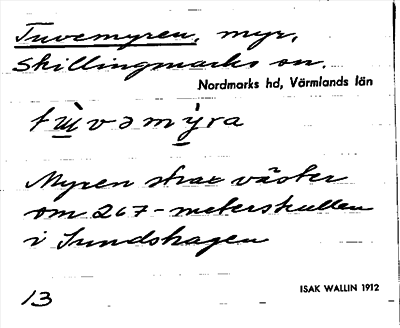 Tuvemyren, myr,
Skillingmarks sn.
Nordmarks hd, Värmlands län
tùvəmy̌ra
Myren strax väster
om 267-meterskullen
i Sundshagen
13
ISAK WALLIN 1912